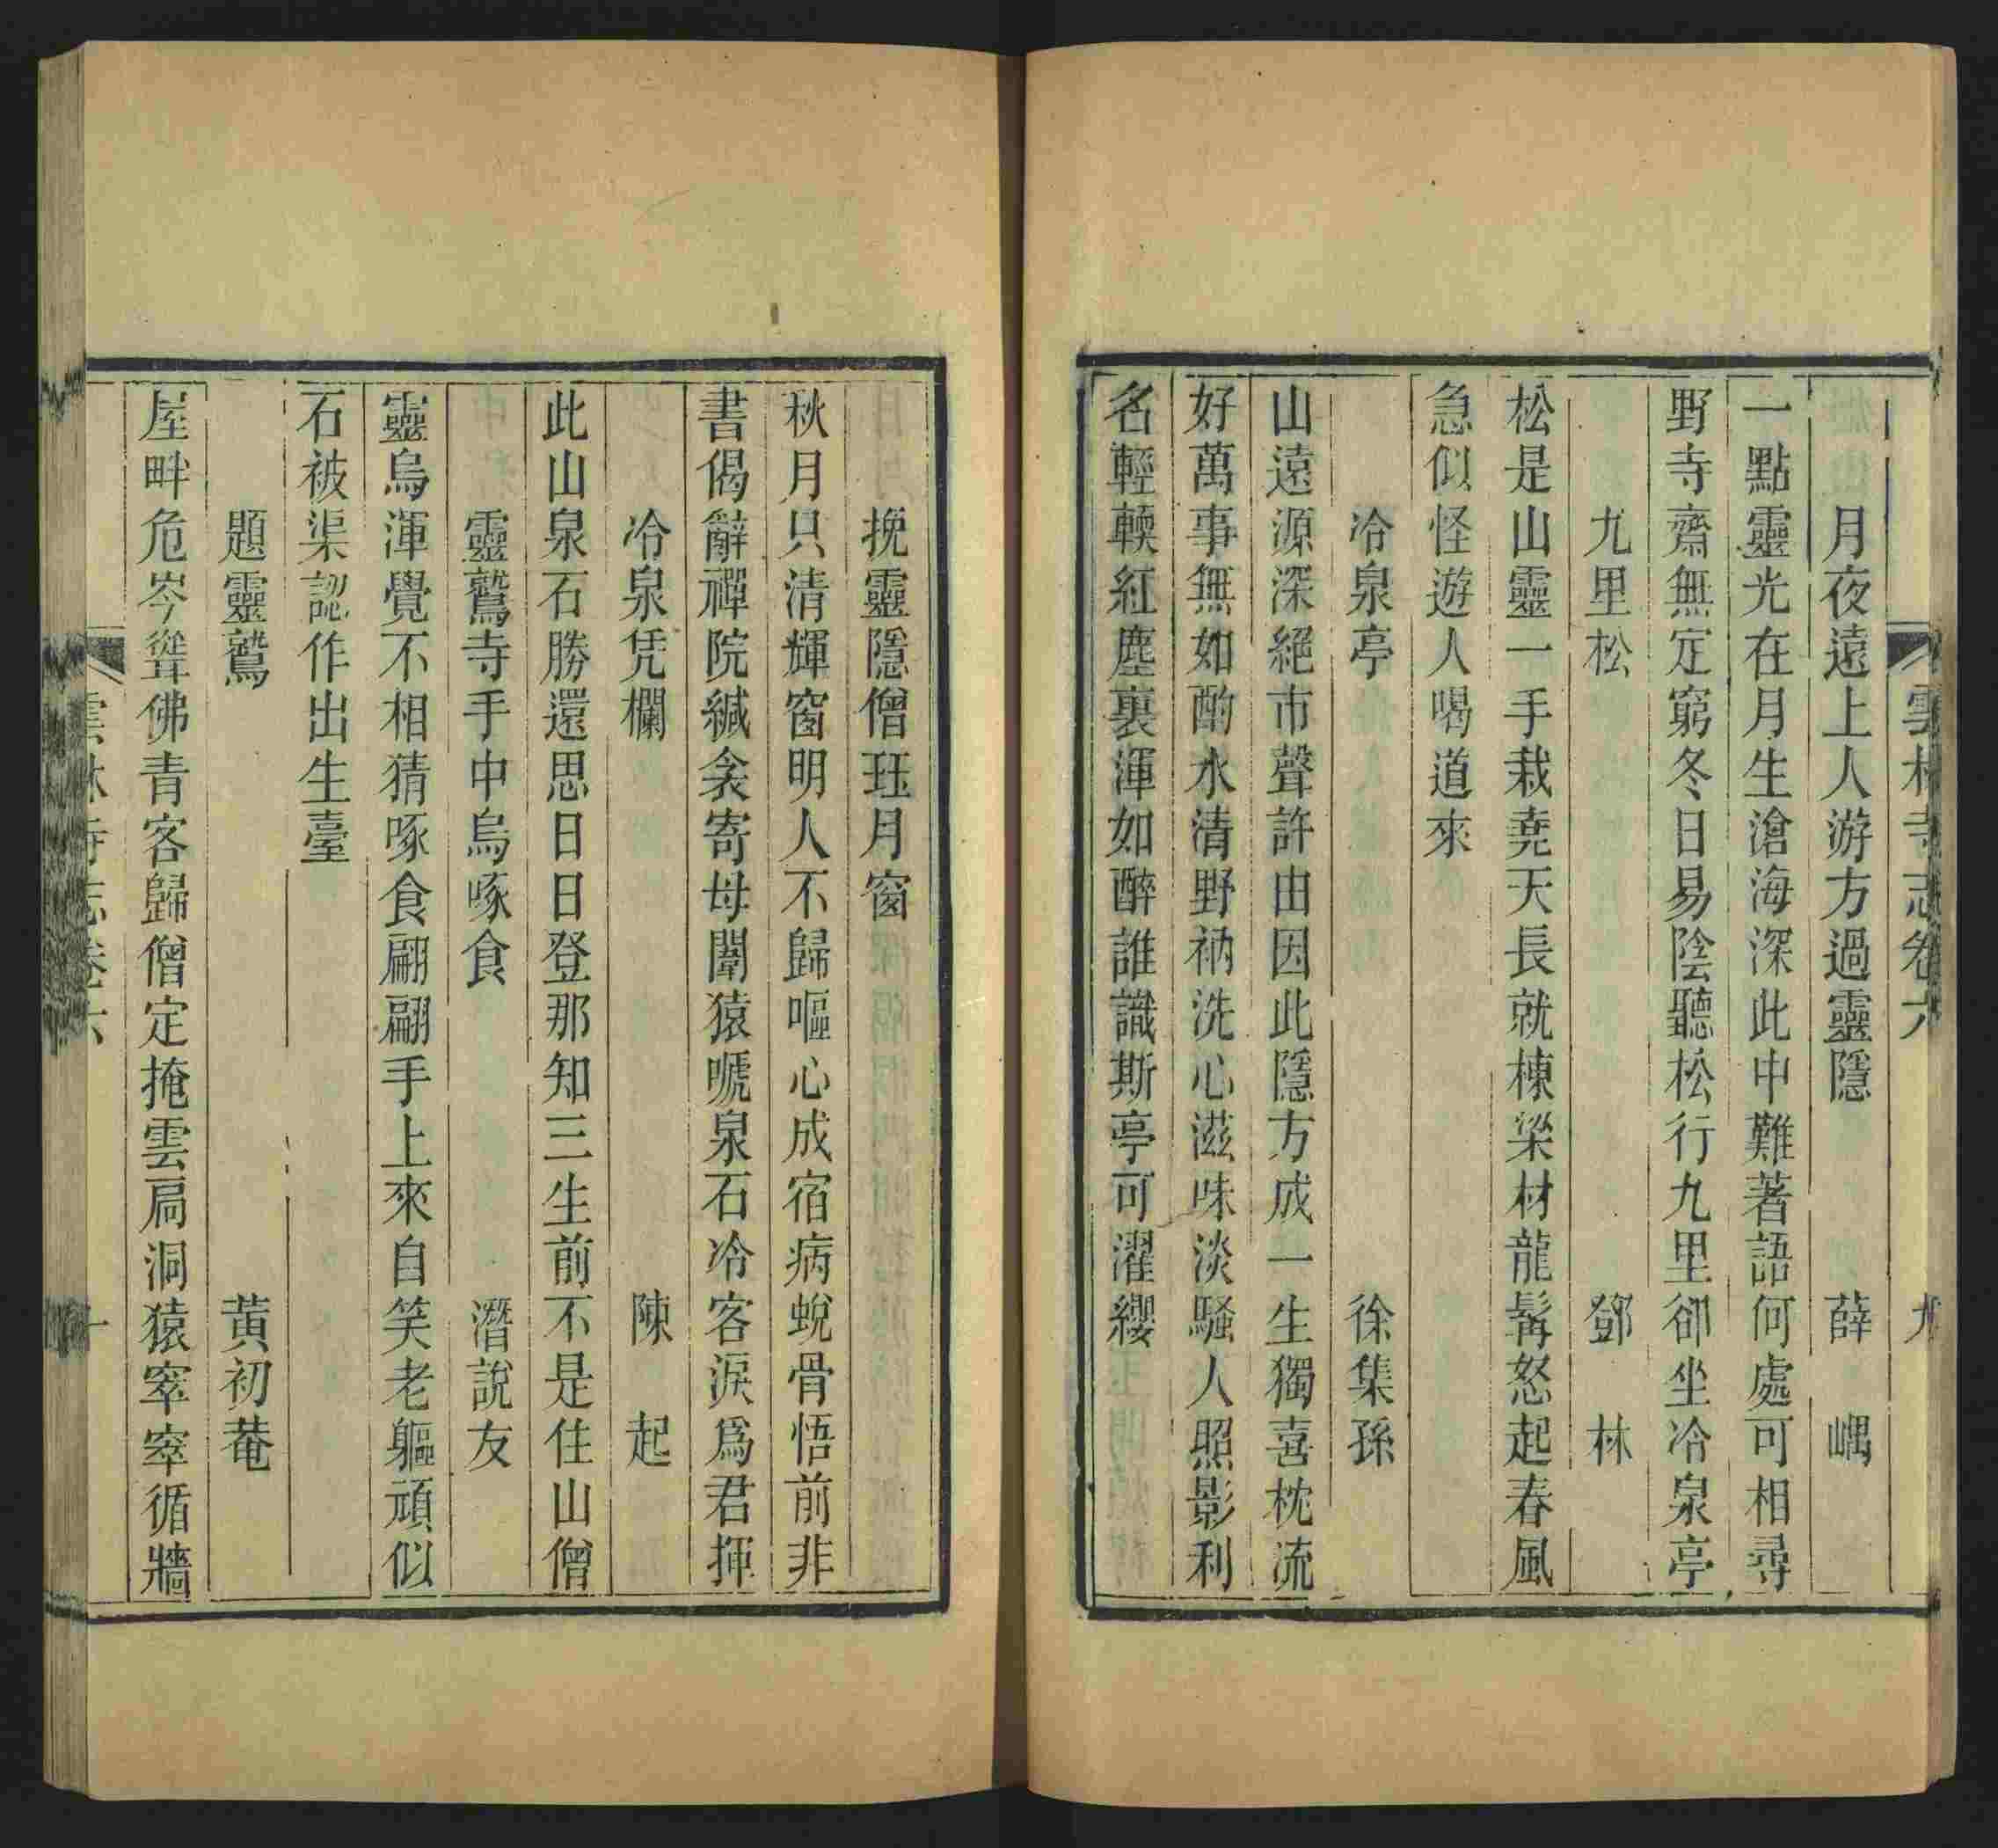 雲林寺志卷六 九
月夜遠上人游方過靈隱 薛嵎
一點靈光在月生滄海深此中難著語何處可相尋
野寺齋無定窮冬日易陰聽松行九里卻坐冷泉亭
九里松 鄧林
松是山靈一手栽堯天長就棟梁材龍髯怒起春風
急似怪遊人喝道來
冷泉亭 徐集孫
山遠源深絕市聲許由因此隱方成一生獨喜枕流
好萬事無如酌水清野衲洗心滋味淡騷人照影利
名輕輭紅塵裏渾如醉誰識斯亭可濯纓
挽靈隱僧珏月窗
秋月只清輝窗明人不歸嘔心成宿病蛻骨悟前非
書偈辭禪院緘衾寄母闈猿嗁泉石冷客淚爲君揮
冷泉凭欄 陳起
此山泉石勝還思日日登那知三生前不是住山僧
靈鷲寺手中烏啄食 潛說友
靈烏渾覺不相猜啄食翩翩手上來自笑老軀頑似
石被渠認作出生臺
題靈鷲 黃初菴
屋畔危岑聳佛青客歸僧定掩雲扃洞猿窣窣循牆
雲林寺志卷六